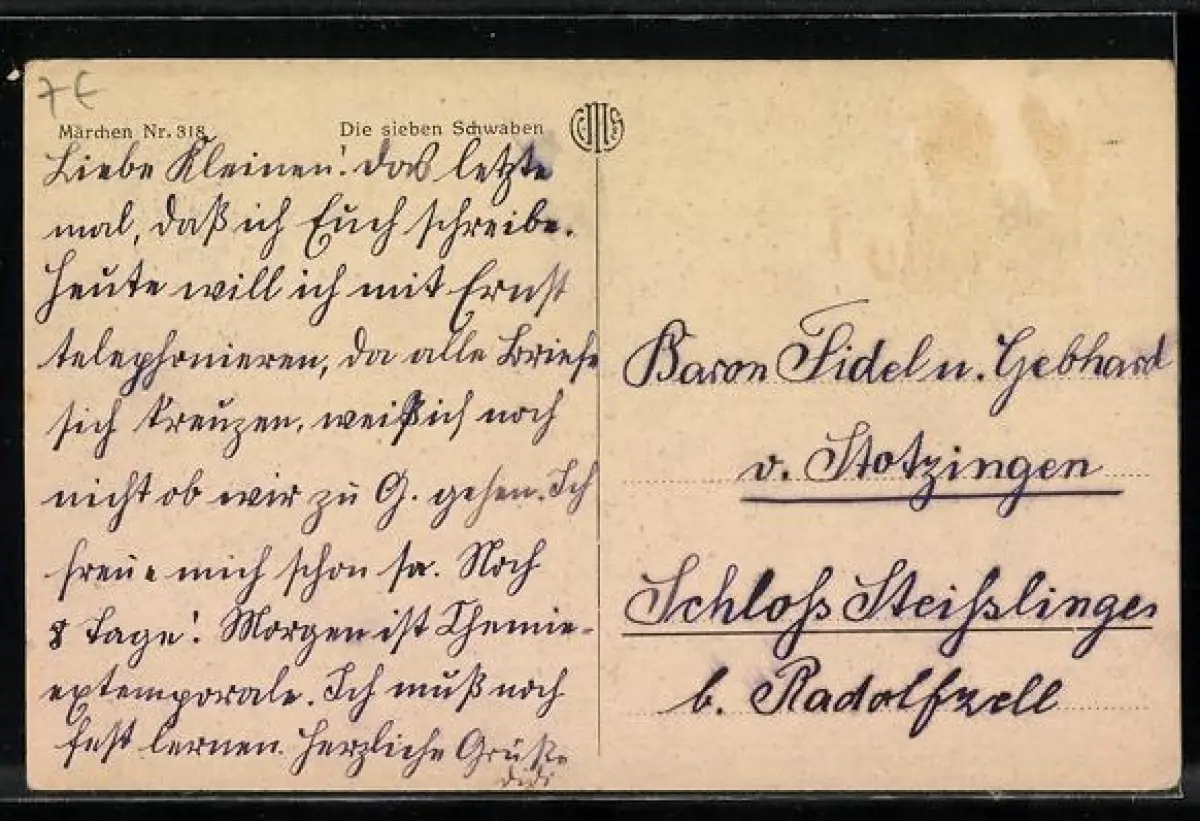 7 €
Märchen Nr. 318
Die sieben Schwaben
Liebe Kleinen! das letzte
mal, daß ich Euch schreibe.
Heute will ich mit Ernst
telephonieren, da alle Briefe
sich kreuzen, weiß ich noch
nicht ob wir zu G. gehen. Ich
freue mich schon sa. Noch
8 Tage! Morgen ist Chemie-
extemporale. Ich muß noch
fest lernen. Herzliche Grüße
Didi
Baron Fidel u. Gebhard
v. Stotzingen
Schloß Steißlingen
b. Radolfzell